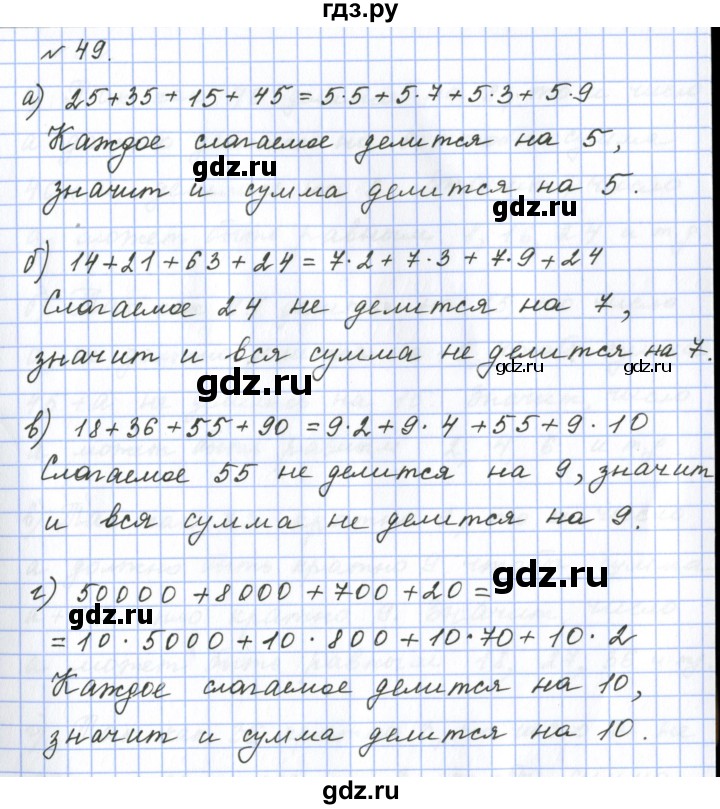 гдз.ру
№ 49.
а) 25+35+15+45=5·5+5·7+5·3+5·9
Каждое слагаемое делится на 5,
gdz.ru
значит и сумма делится на 5.
gdz.ru
б) 14+21+63+24=7·2+7·3+7·9+24
Слагаемое 24 не делится на 7,
значит и вся сумма не делится на 7.
gdz.ru
gdz.ru
в) 18+36+55+90=9·2+9·4+55+9·10
Слагаемое 55 не делится на 9, значит
и вся сумма не делится на 9.
г) 50000+8000+700+20=
gdz.ru
gdz.ru
=10·5000+10·800+10·70+10·2
Каждое слагаемое делится на 10,
значит и сумма делится на 10.